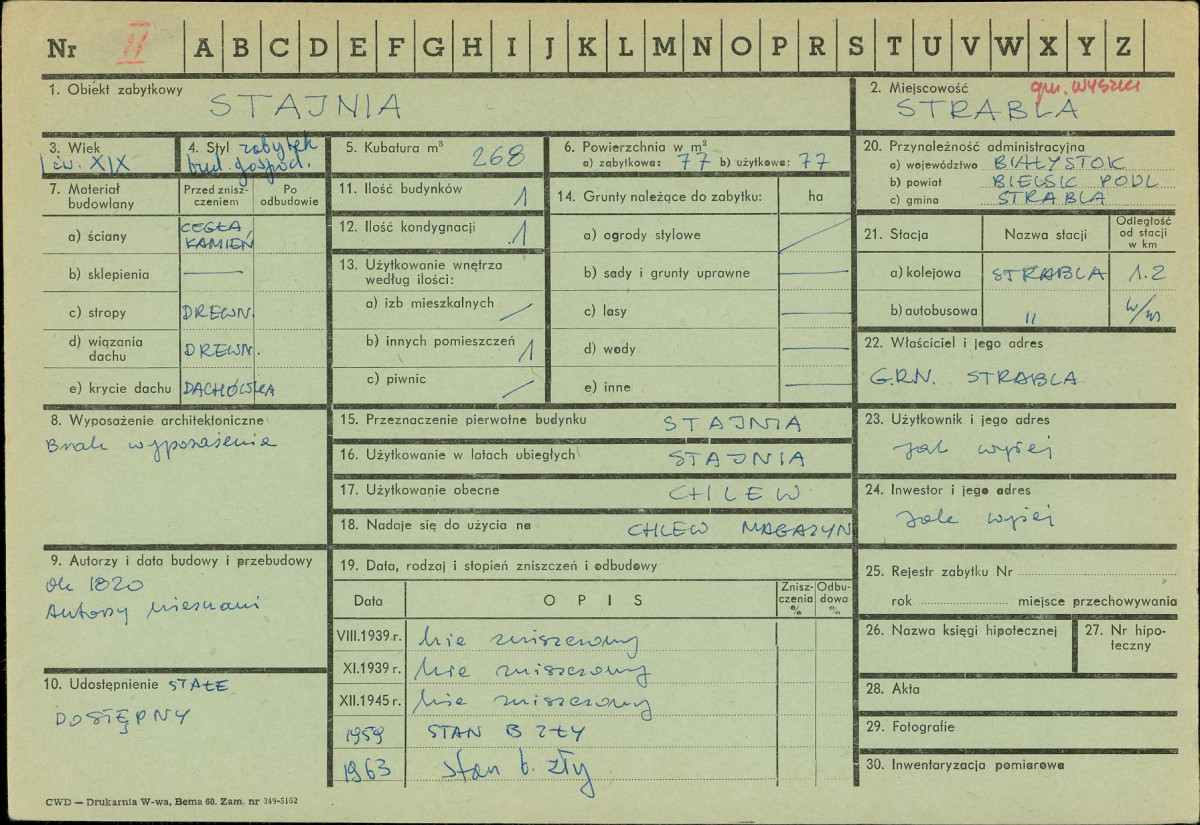 Nr II A B C D E F G H I J K L M N O P R S T U V W X Y Z
1. Obiekt zabytkowy STAJNIA
2. Miejscowość gm. WYSZKI
STRABLA
3. Wiek
I ćw. XIX
4. Styl zabytek
bud. gospod.
5. Kubatura m³ 268
6. Powierzchnia w m²
a) zabytkowa: 77 b) użytkowa: 77
20. Przynależność administracyjna
a) województwo BIAŁYSTOK
b) powiat BIELSK PODL
c) gmina STRABLA
7. Materiał budowlany
Przed znisz-
czeniem
Po
odbudowie
a) ściany CEGŁA,
KAMIEŃ
b) sklepienia —
c) stropy DREWN.
d) wiązania
dachu DREWN.
e) krycie dachu DACHÓWKA
11. Ilość budynków 1
12. Ilość kondygnacji 1
13. Użytkowanie wnętrza
według ilości:
a) izb mieszkalnych /
b) innych pomieszczeń 1
c) piwnic /
14. Grunty należące do zabytku: ha
a) ogrody stylowe /
b) sady i grunty uprawne —
c) lasy —
d) wody —
e) inne —
21. Stacja Nazwa stacji Odległość
od stacji
w km
a) kolejowa STRABLA 1.2
b) autobusowa " w/m
22. Właściciel i jego adres
G.R.N. STRABLA
8. Wyposażenie architektoniczne
Brak wyposażenia
15. Przeznaczenie pierwotne budynku STAJNIA
16. Użytkowanie w latach ubiegłych STAJNIA
17. Użytkowanie obecne CHLEW
18. Nadaje się do użycia na CHLEW MAGAZYN
23. Użytkownik i jego adres
Jak wyżej
24. Inwestor i jego adres
Jak wyżej
9. Autorzy i data budowy i przebudowy
ok 1820
Autorzy nieznani
10. Udostępnienie STAŁE
DOSTĘPNY
19. Data, rodzaj i stopień zniszczeń i odbudowy
Data OPIS Znisz-
czenia
%
Odbu-
dowa
%
VIII.1939 r. nie zniszczony
XI.1939 r. nie zniszczony
XII.1945 r. nie zniszczony
1959 STAN B ZŁY
1963 stan b. zły
25. Rejestr zabytku Nr
rok miejsce przechowywania
26. Nazwa księgi hipotecznej
27. Nr hipo-
teczny
28. Akta
29. Fotografie
30. Inwentaryzacja pomiarowa
CWD — Drukarnia W-wa, Bema 60. Zam. nr 349-5162